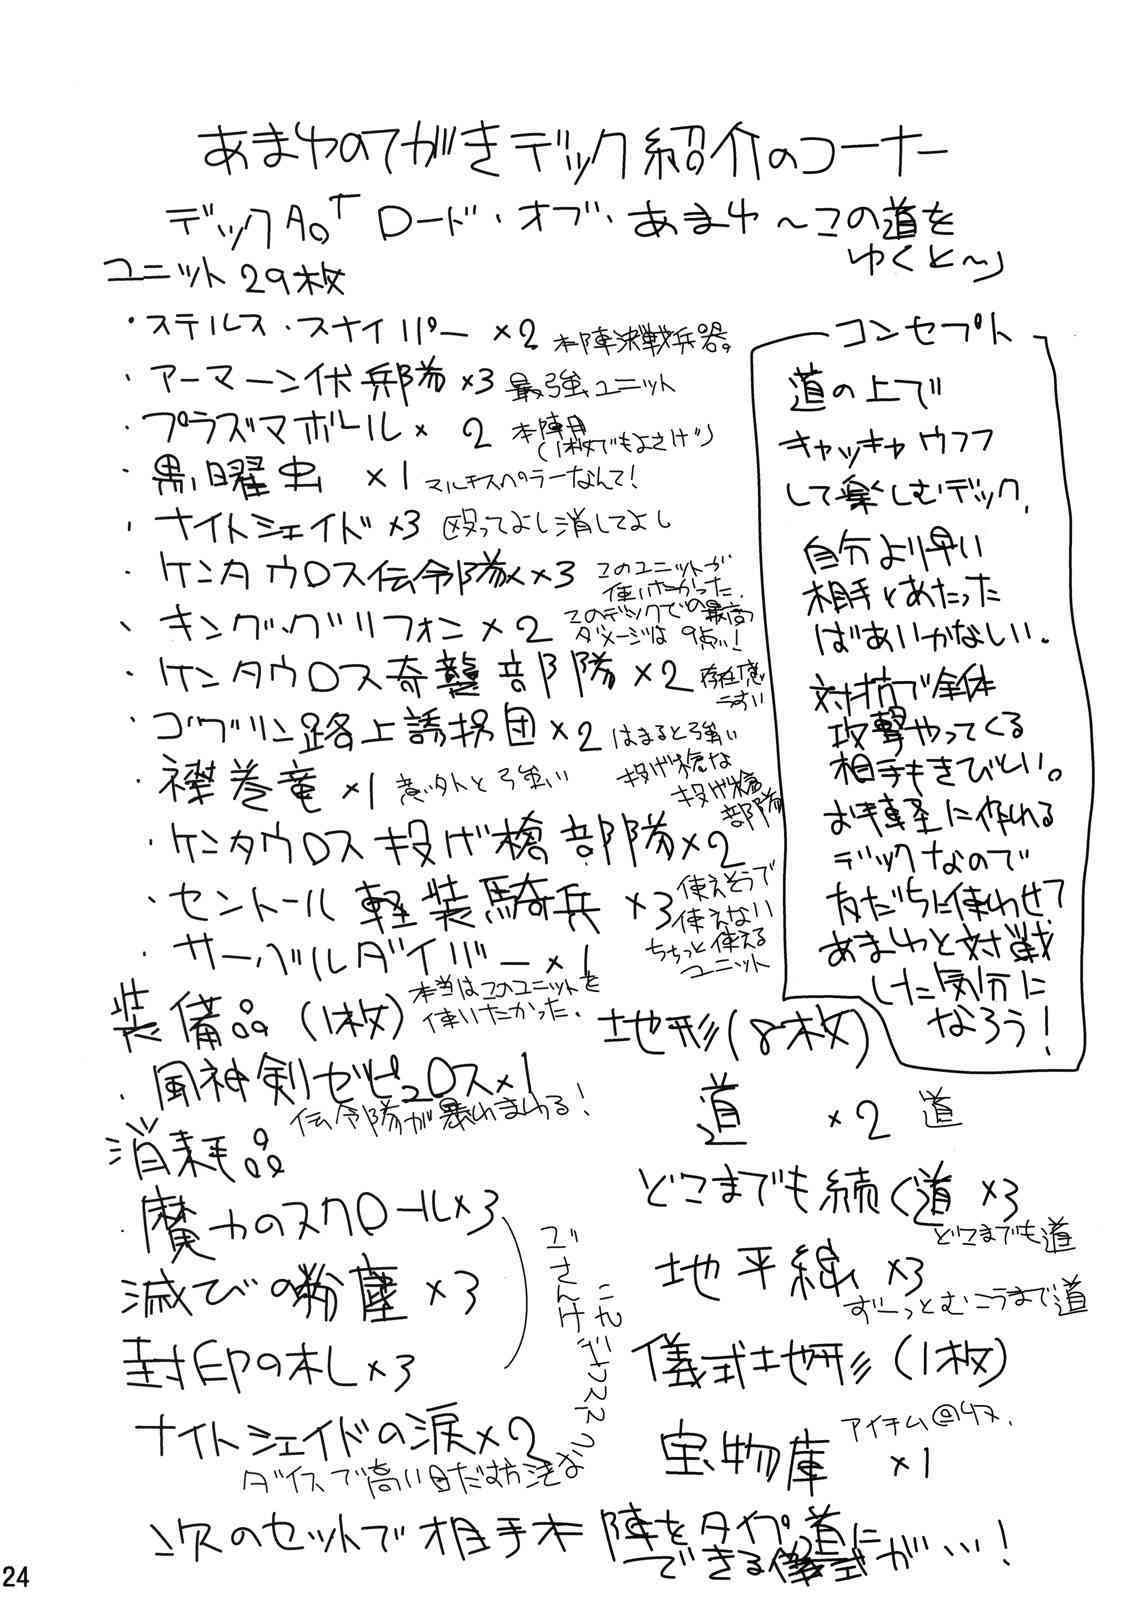 あまゆのてがきデック紹介のコーナー
デックA。「ロード・オブ・あまゆ～この道を
ゆくと～」
ユニット29枚
・ステルス・スナイパー×2 本陣決戦兵器。
・アーマーン伏兵部隊×3 最強ユニット
・プラズマボール×2 本陣用
(1枚でもよさげ)
・黒曜虫×1 マルチスペラーなんて!
・ナイトシェイド×3 殴ってよし消してよし
・ケンタウロス伝令隊×3 このユニットが
使いたかった.
・キング・グリフォン×2 このデックでの最高
ダメージは9点!
・ケンタウロス奇襲部隊×2 存在感
うすい
・ゴブリン路上誘拐団×2 はまると強い
・襟巻竜×1 意外と強い
・ケンタウロス投げ槍部隊×2
投げ槍な
投げ槍
部隊
・セントール軽装騎兵×3 使えそうで
使えない
ちょっと使える
ユニット
・サーバルダイバー×1
本当はこのユニットを
使いたかった.
コンセプト
道の上で
キャッキャウフフ
して楽しむデック.
自分より早い
相手とあたった
ばあいかなしい.
対抗で全体
攻撃やってくる
相手もきびしい。
お手軽に作れる
デックなので
友だちに使わせて
あまゆと対戦
した気分に
なろう!
装備品(1枚)
・風神剣ゼピュロス×1
伝令隊が暴れまわる!
消耗品
・魔力のスクロール×3
滅びの粉塵×3
封印の札×3
ナイトシェイドの涙×2
ダイスで高い目だす方法な
地形(8枚)
道×2 道
どこまでも続く道×3
どこまでも道
地平線×3
ずーっとむこうまで道
儀式地形(1枚)
宝物庫×1
次のセットで相手本陣をタイプ:道に
できる儀式が…!
24